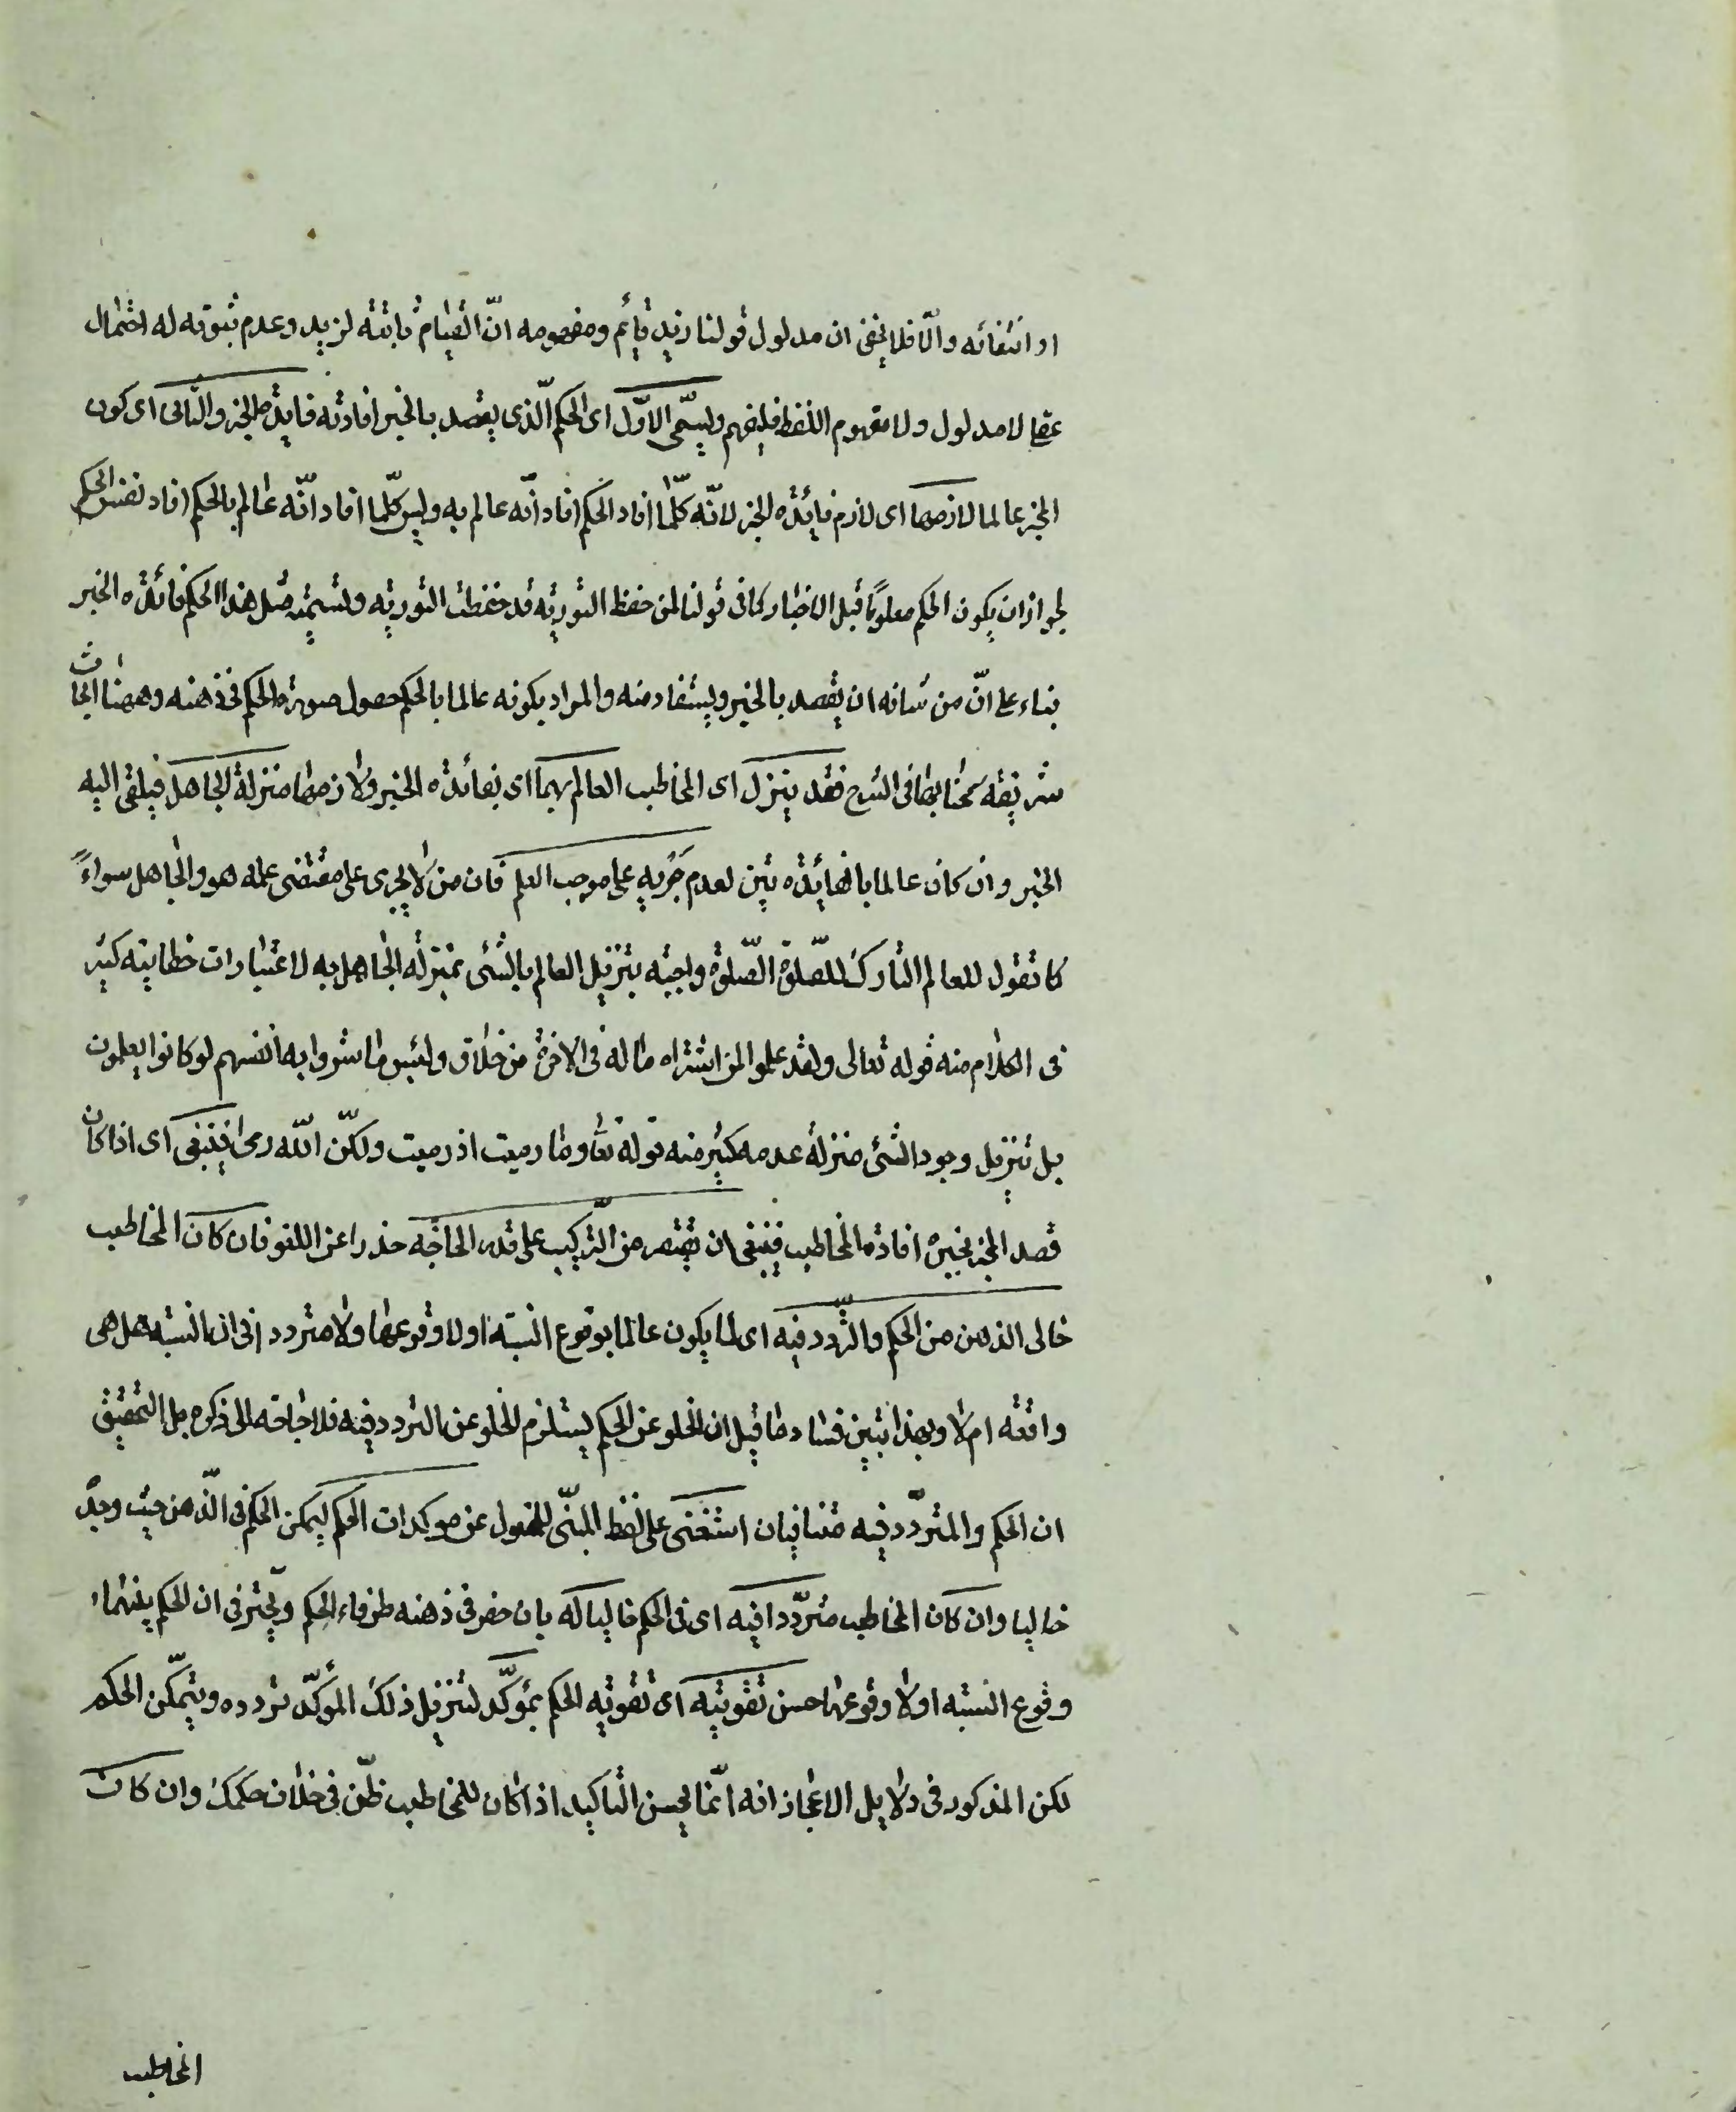 او انتفائه والّا فلا يخفى ان مدلول قولنا زيد قائم ومفهومه انّ القيام ثابتة لزيد وعدم ثبوته له احتمال
عقلي لا مدلول ولا مفهوم اللفظ فليفهم ويسمّى الاوّل اى الحكم الّذى يقصد بالخبر افادته فايدة الخبر والثانى اى كون
المخبر عالما لازمها اى لازم فايدة الخبر لانّه كلّما افاد الحكم افاد انّه عالم به وليس كلّما افاد انّه عالم بالحكم افاد نفس الحكم
لجواز ان يكون الحكم معلومًا قبل الاخبار كما فى قولنا لمن حفظ التورية قد حفظت التورية وتسمية مثل هذا الحكم فائدة الخبر
بناء على انّ من شانه ان يقصد بالخبر ويستفاد منه والمراد بكونه عالما بالحكم حصول صورة الحكم فى ذهنه وههنا ابحاث
شريفة سمحنا بها فى الشرح فقد ينزل اى المخاطب العالم بهما اى بفائدة الخبر ولازمها منزلة الجاهل فيلقى اليه
الخبر وان كان عالما بالفايدتين لعدم جَريه على موجب العلم فان من لا يجرى على مقتضى علمه هو والجاهل سواءً
كما تقول للعالم التارك للصّلوة الصّلوة واجبة بتنزيل العالم بالشئ بمنزلة الجاهل به لاعتبارات خطابية كثير
فى الكلام منه قوله تعالى ولقد علموا لمن اشتراه ما له فى الاخرة من خلاق ولبئس ما شروا به انفسهم لو كانوا يعلمون
بل تنزيل وجود الشئ منزلة عدمه كثير منه قوله تعا وما رميت اذ رميت ولكنّ الله رمى فينبغى اى اذا كان
قصد المخبر بخبره افادة المخاطب فينبغى ان يقتصر من التّركيب على قدر الحاجة حذرا عن اللغو فان كان المخاطب
خالى الذهن من الحكم والتّردد فيه اى لا يكون عالما بوقوع النسبة او لا وقوعها ولا مترددا فى ان النسبة هل هى
واقعة ام لا وبهذا تبين فساد ما قيل ان الخلو عن الحكم يستلزم الخلو عن التردد فيه فلا حاجة الى ذكره بل التحقيق
ان الحكم والمتردّد فيه متنافيان استغنى على لفظ المبنّى للمفعول عن موكدات الحكم ليمكن الحكم فى الذّهن حيث وجدّ
خاليا وان كان المخاطب متردّدا فيه اى فى الحكم طالبا له بان حضر فى ذهنه طرفاء الحكم وتحيّر فى ان الحكم بينهما
وقوع النسبة او لا وقوعها حسن تقويته اى تقوية الحكم بمؤكّد لتنزيل ذلك المؤكّد تردده ويتمكّن الحكم
لكن المذكور فى دلايل الاعجاز انه انّما يحسن التاكيد اذا كان للمخاطب ظّن فى خلاف حكمك وان كان
المخاطب